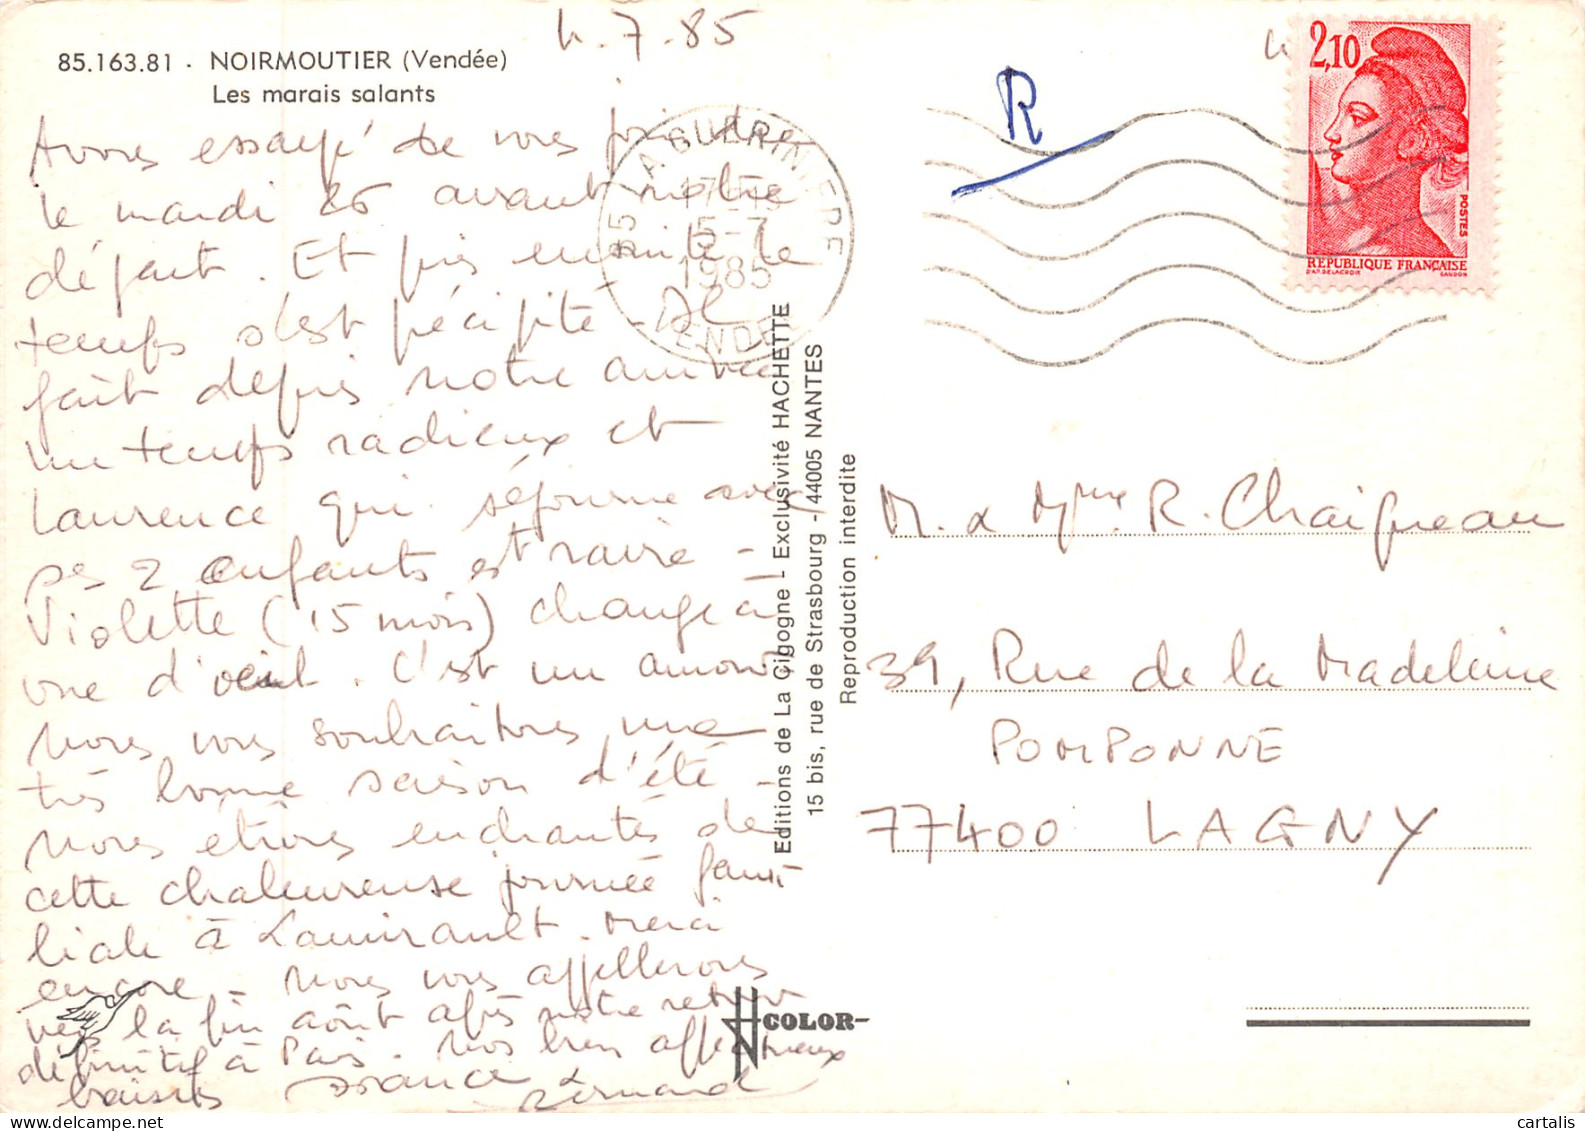 4.7.85
85.163.81 . NOIRMOUTIER (Vendée)
Les marais salants
Avons essayé de vous joindre
le mardi 26 avant notre
départ. Et puis ensuite le
temps s'est précipité - Il
fait depuis notre arrivée
un temps radieux et
Laurence qui séjourne avec
ses 2 enfants est ravie -
Violette (15 mois) change à
vue d'oeil. C'est un amour
Nous vous souhaitons une
très bonne saison d'été -
Nous étions enchantés de
cette chaleureuse journée fami-
liale à Lamirault. Merci
encore - Nous vous appellerons
vers la fin août après notre retour
définitif à Paris. Nos bien affectueux
baisers France Bernard
LA GUERINIERE
5-7
1985
85 VENDEE
R
2,10
POSTES
REPUBLIQUE FRANÇAISE
D'AP. DELACROIX GANDON
Editions de La Cigogne - Exclusivité HACHETTE
15 bis, rue de Strasbourg - 44005 NANTES
Reproduction interdite
M. & Mme R. Chaigneau
39, Rue de la Madeleine
POMPONNE
77400 LAGNY
COLOR
cartalis delcampe.net